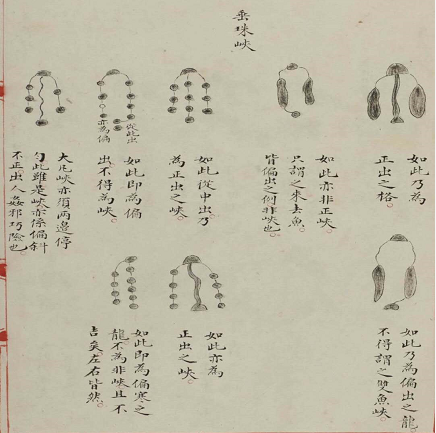 垂珠峽
如此乃為
正出之格
如此亦非正峽
只謂之來去魚
皆偏出之例非峽也
如此從中出乃
為正出之峽
如此即為偏
出不得為峽
從此出
亦為偏
大凡峽亦須兩邉停
勻此雖是峽亦係偏斜
不正出人姦邪巧險也
如此乃為偏出之龍
不得謂之雙魚峽
如此亦為
正出之峽
如此即為偏寒之
龍不為非峽且不
吉矣左右皆然